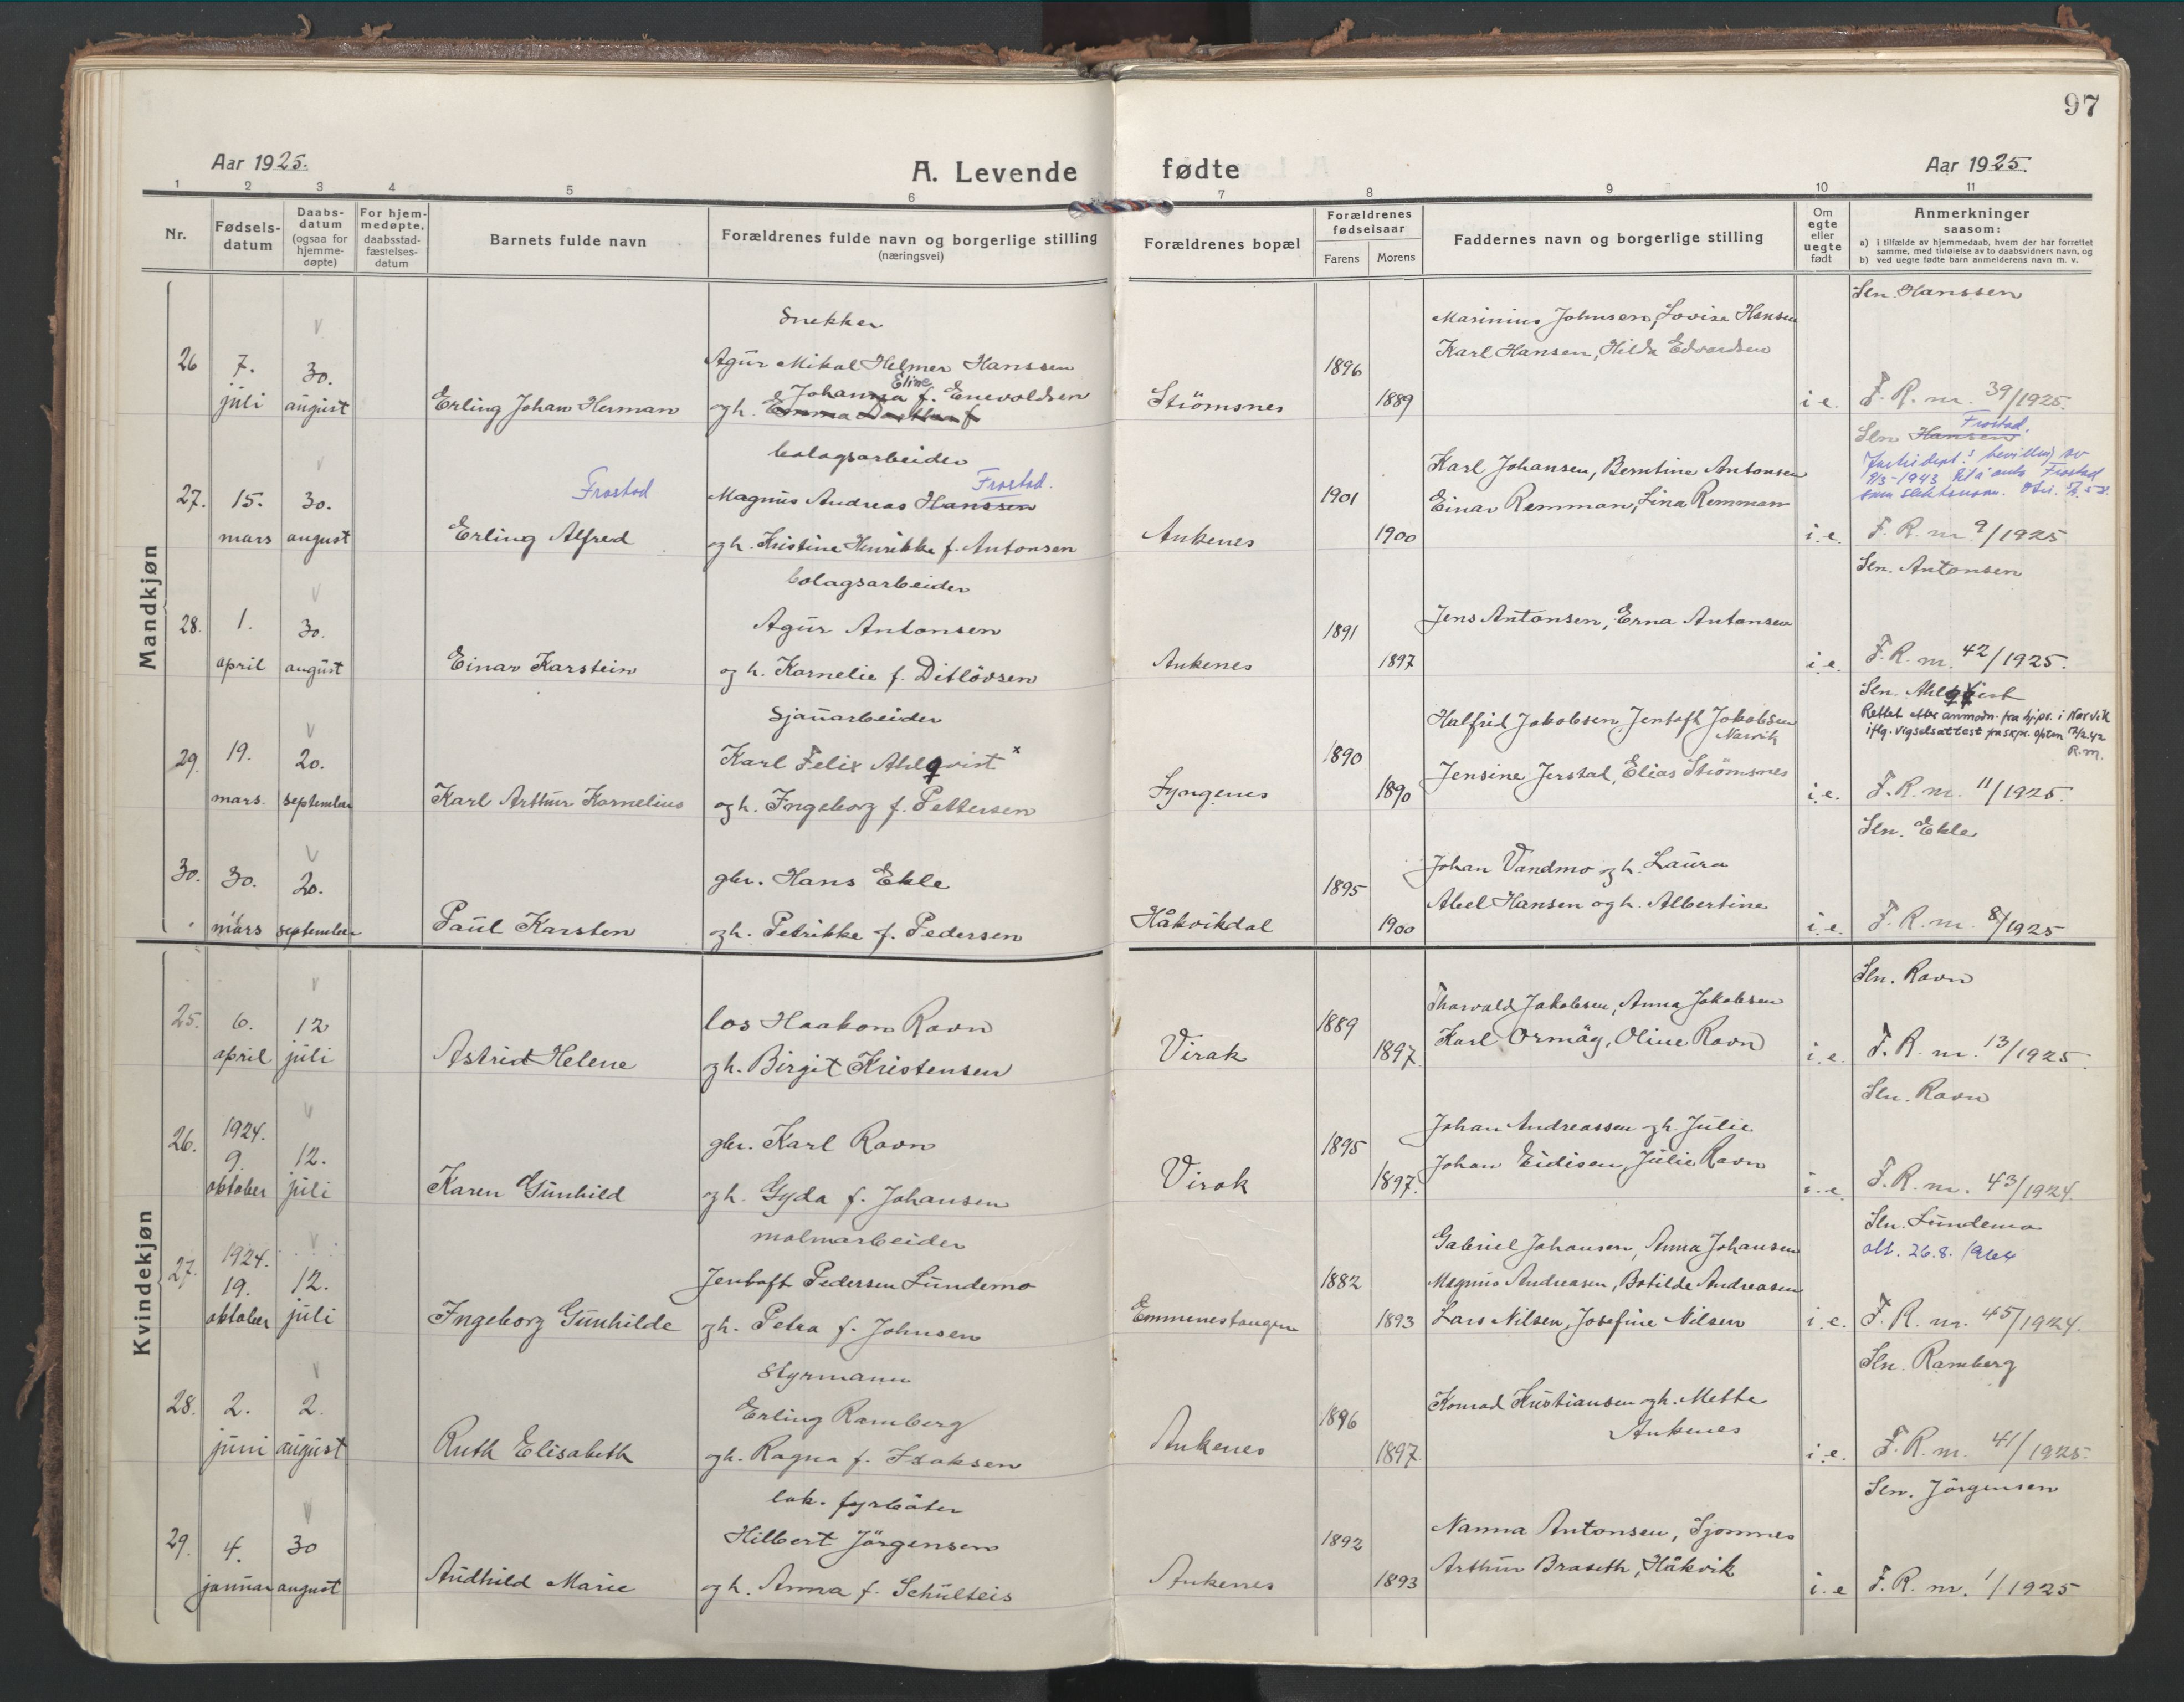 97
Aar 1925.
A. Levende fødte
Aar 1925.
1 2 3 4 5 6 7 8 9 10 11
Nr.
Fødsels-
datum
Daabs-
datum
(ogsaa for
hjemme-
døpte)
For hjem-
medøpte,
daabsstad-
fæstelses-
datum
Barnets fulde navn
Forældrenes fulde navn og borgerlige stilling
(næringsvei)
Forældrenes bopæl
Forældrenes
fødselsaar
Farens Morens
Faddernes navn og borgerlige stilling
Om
egte
eller
uegte
født
Anmerkninger
saasom:
a) I tilfælde av hjemmedaab, hvem der har forrettet
samme, med tilføielse av to daabsvidners navn, og
b) ved uegte fødte barn anmelderens navn m. v.
Mandkjøn
26
7.
juli
30.
august
Erling Johan Herman
Snekker
Agur Mikal Helmer Hanssen
Eline
Johanna f. Enevoldsen
og h. Emma
Strömsnes
1896
1889
Marinius Johnsen, Lovise Hansen
Karl Hansen, Hilda Edvardsen
i.e.
Sln. Hanssen
F. R. nr. 39/1925.
27.
15.
mars
30.
august
Frostad
Erling Alfred
bolagsarbeider
Frostad.
Magnus Andreas Hanssen
og h. Kristine Henrikke f. Antonsen
Ankenes
1901
1900
Karl Johansen, Berntine Antonsen
Einar Remman, Lina Remman
i.e.
Frostad.
Sln Hansen
Justisdept.s bevilling av
9/3-1943 til å anta Frostad
som slektsnavn.
F. R. nr. 9/1925
28.
1.
april
30.
august
Einar Karstein
bolagsarbeider
Agur Antonsen
og h. Kornelie f. Ditlövsen
Ankenes
1891
1897
Jens Antonsen, Erna Antonsen
i.e.
Sln. Antonsen
F. R. nr. 42/1925.
29.
19.
mars.
20.
september
Karl Arthur Kornelius
Sjauarbeider
Karl Felix Ahlqvist x
og h. Ingeborg f. Pettersen
Lyngenes
1890
1890
Halfrid Jakobsen, Jentoft Jakobsen
Narvik
Jensine Jerstad, Elias Strömsnes
i.e.
Sln. Ahlqvist
Rettet etter anmodn. fra hj.pr. i Narvik
iflg. vigselsattest fra skpr.
R.M.
F. R. nr. 11/1925.
30.
30.
mars
20.
september
Paul Karsten
gbr. Hans Ekle
og h. Petrikke f. Pedersen
Håkvikdal
1895
1900
Johan Vandmo og h. Laura
Abel Hansen og h. Albertine
i.e.
Sln. Ekle
F. R. nr. 8/1925
Kvindekjøn
25.
6.
april
12
juli
Astrid Helene
los Haakon Ravn
og h. Birgit Kristensen
Virak
1889
1897.
Thorvald Jakobsen, Anna Jakobsen
Karl Ormåg, Oline Ravn
i.e.
Sln. Ravn
F. R. nr. 13/1925.
26.
1924.
9.
oktober
12.
juli
Karen Gunhild
gbr. Karl Ravn
og h. Gyda f. Johansen
Virak
1895
1897.
Johan Andreassen og h. Julie
Johan Eidisen, Julie Ravn
i.e.
Sln. Ravn
F. R. nr. 43/1924.
27.
1924.
19.
oktober
12.
juli
Ingeborg Gunhilde
malmarbeider
Jentoft Pedersen Lundemo
og h. Petra f. Johnsen
Emmenestangen
1882
1893
Gabriel Johansen, Anna Johansen
Magnus Andreasen, Botilde Andreasen
Lars Nilsen, Josefine Nilsen
i.e.
Sln. Lundemo
att. 26.8.1964
F. R. nr. 45/1924.
28.
2.
juni
2.
august
Ruth Elisabeth
Styrmann
Erling Ramberg
og h. Ragna f. Isaksen
Ankenes
1896
1897.
Konrad Kristiansen og h. Mette
Ankenes
i.e.
Sln. Ramberg
F. R. nr. 41/1925.
29.
4.
januar
30
august
Audhild Marie
lok. fyrböter
Hilbert Jörgensen
og h. Anna f. Schulteis
Ankenes
1892
1893
Nanna Antonsen, Sjomnes
Arthur Braseth, Håkvik
i.e
Sln. Jörgensen
F. R. nr. 1/1925